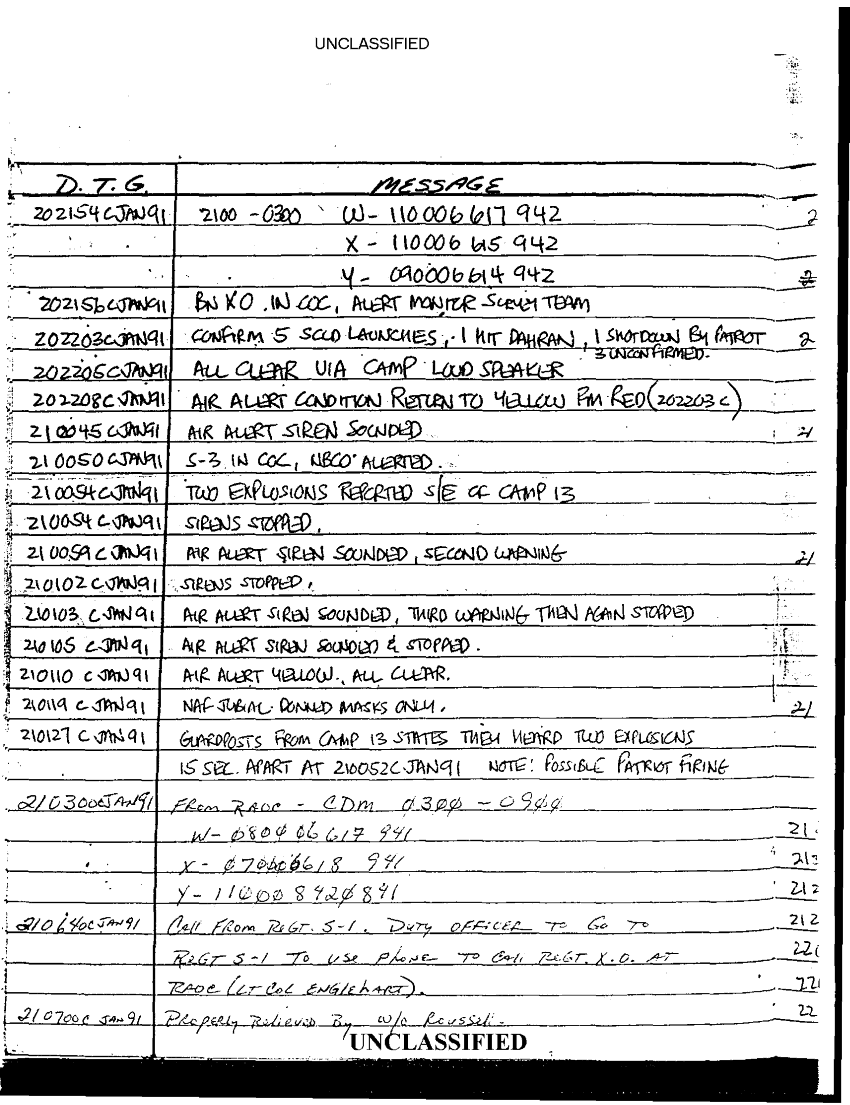 UNCLASSIFIED
D. T. G. MESSAGE
202154 C JAN 91 2100 - 0300 W - 110006617 942 2
X - 110006 615 942
Y - 090006614 942 2
202156 C JAN 91 BN XO IN COC, ALERT MONITOR SURVEY TEAM
202203 C JAN 91 CONFIRM 5 SCUD LAUNCHES, 1 HIT DAHRAN, 1 SHOTDOWN BY PATRIOT 2
3 UNCONFIRMED.
202205 C JAN 91 ALL CLEAR VIA CAMP LOUD SPEAKER
202208 C JAN 91 AIR ALERT CONDITION RETURN TO YELLOW FM RED (202203 C)
210045 C JAN 91 AIR ALERT SIREN SOUNDED 21
210050 C JAN 91 S-3 IN COC, NBCO ALERTED.
210054 C JAN 91 TWO EXPLOSIONS REPORTED S/E OF CAMP 13
210054 C JAN 91 SIRENS STOPPED.
210059 C JAN 91 AIR ALERT SIREN SOUNDED, SECOND WARNING 21
210102 C JAN 91 SIRENS STOPPED.
210103 C JAN 91 AIR ALERT SIREN SOUNDED, THIRD WARNING THEN AGAIN STOPPED
210105 C JAN 91 AIR ALERT SIREN SOUNDED & STOPPED.
210110 C JAN 91 AIR ALERT YELLOW, ALL CLEAR.
210119 C JAN 91 NAF JUBIAL DONNED MASKS ONLY. 21
210127 C JAN 91 GUARDPOSTS FROM CAMP 13 STATES THEY HEARD TWO EXPLOSIONS
15 SEC. APART AT 210052C JAN 91 NOTE: POSSIBLE PATRIOT FIRING
210300C JAN 91 FROM RAOC - CDM 0300 - 0900
W - 080006617 941 21
X - 070006618 941 213
Y - 110008420841 212
210640C JAN 91 CALL FROM REGT. S-1. DUTY OFFICER TO GO TO 212
REGT S-1 TO USE PHONE TO CALL REGT. X.O. AT 220
RAOC (LT COL ENGLEHART). 220
210700C JAN 91 Properly Relieved By W/O Roussel. 22
UNCLASSIFIED